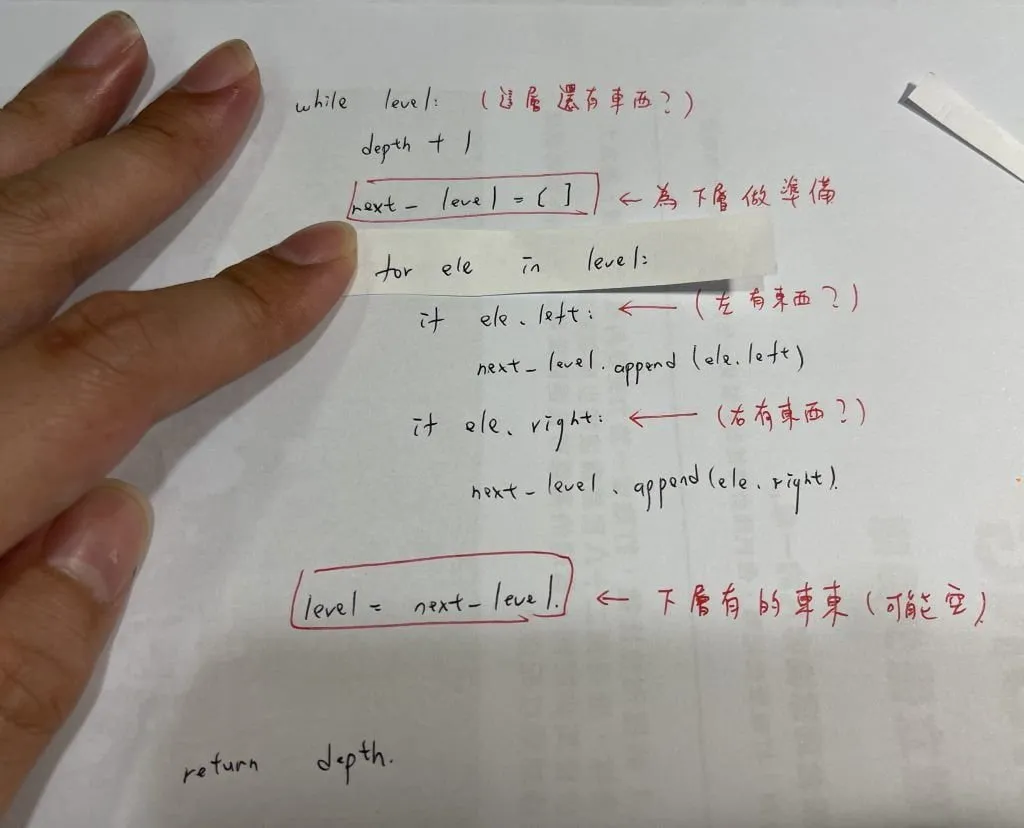 while level: (這層還有東西?)
depth + 1
next_level = [ ] ← 為下層做準備
for ele in level:
if ele.left: ← (左有東西?)
next_level.append(ele.left)
if ele.right: ← (右有東西?)
next_level.append(ele.right).
level = next_level. ← 下層有的車東(可能空).
return depth.